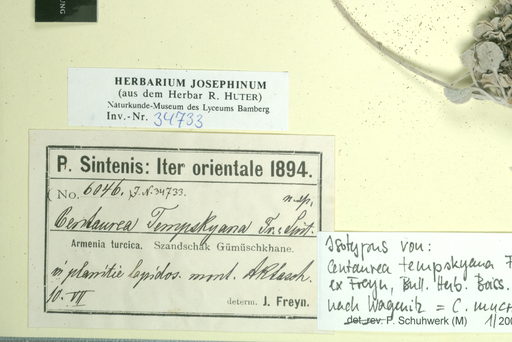 UNG
HERBARIUM JOSEPHINUM
(aus dem Herbar R. HUTER)
Naturkunde-Museum des Lyceums Bamberg
Inv.-Nr. 34733
P. Sintenis: Iter orientale 1894.
(No. 6046. J.N. 34733.
n. sp.
Centaurea Tempskyana Fr.: Sint.
Armenia turcica. Szandschak Gümüschkhane.
in planitie lapidos. mont. Aktasch.
10. VII
determ. J. Freyn.
Isotypus von:
Centaurea tempskyana F
ex Freyn, Bull. Herb. Boiss.
nach Wagenitz = C. mucr
det. rev. P. Schuhwerk (M) 1/200